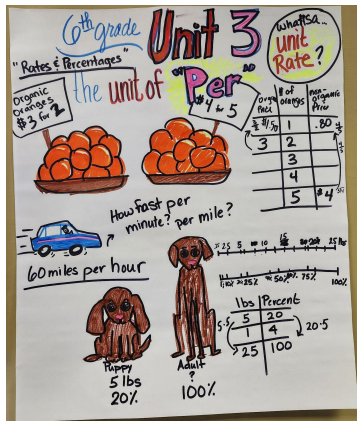 6th grade
Unit 3
"Rates & Percentages"
the unit of "Per"
what is a...
unit
Rate?
Organic
Oranges
$3 for 2
$4 for 5
Organic
Price
# of
oranges
non-
organic
Price
$1.50 1 .80
3 2
3
4
5 $4
How fast per
minute? per mile?
60 miles per hour
5 10 15 20 25 lbs
10% 25% 50% 75% 100%
lbs Percent
5 20
1 4
25 100
5·5
20·5
Puppy
5 lbs
20%
Adult
?
100%